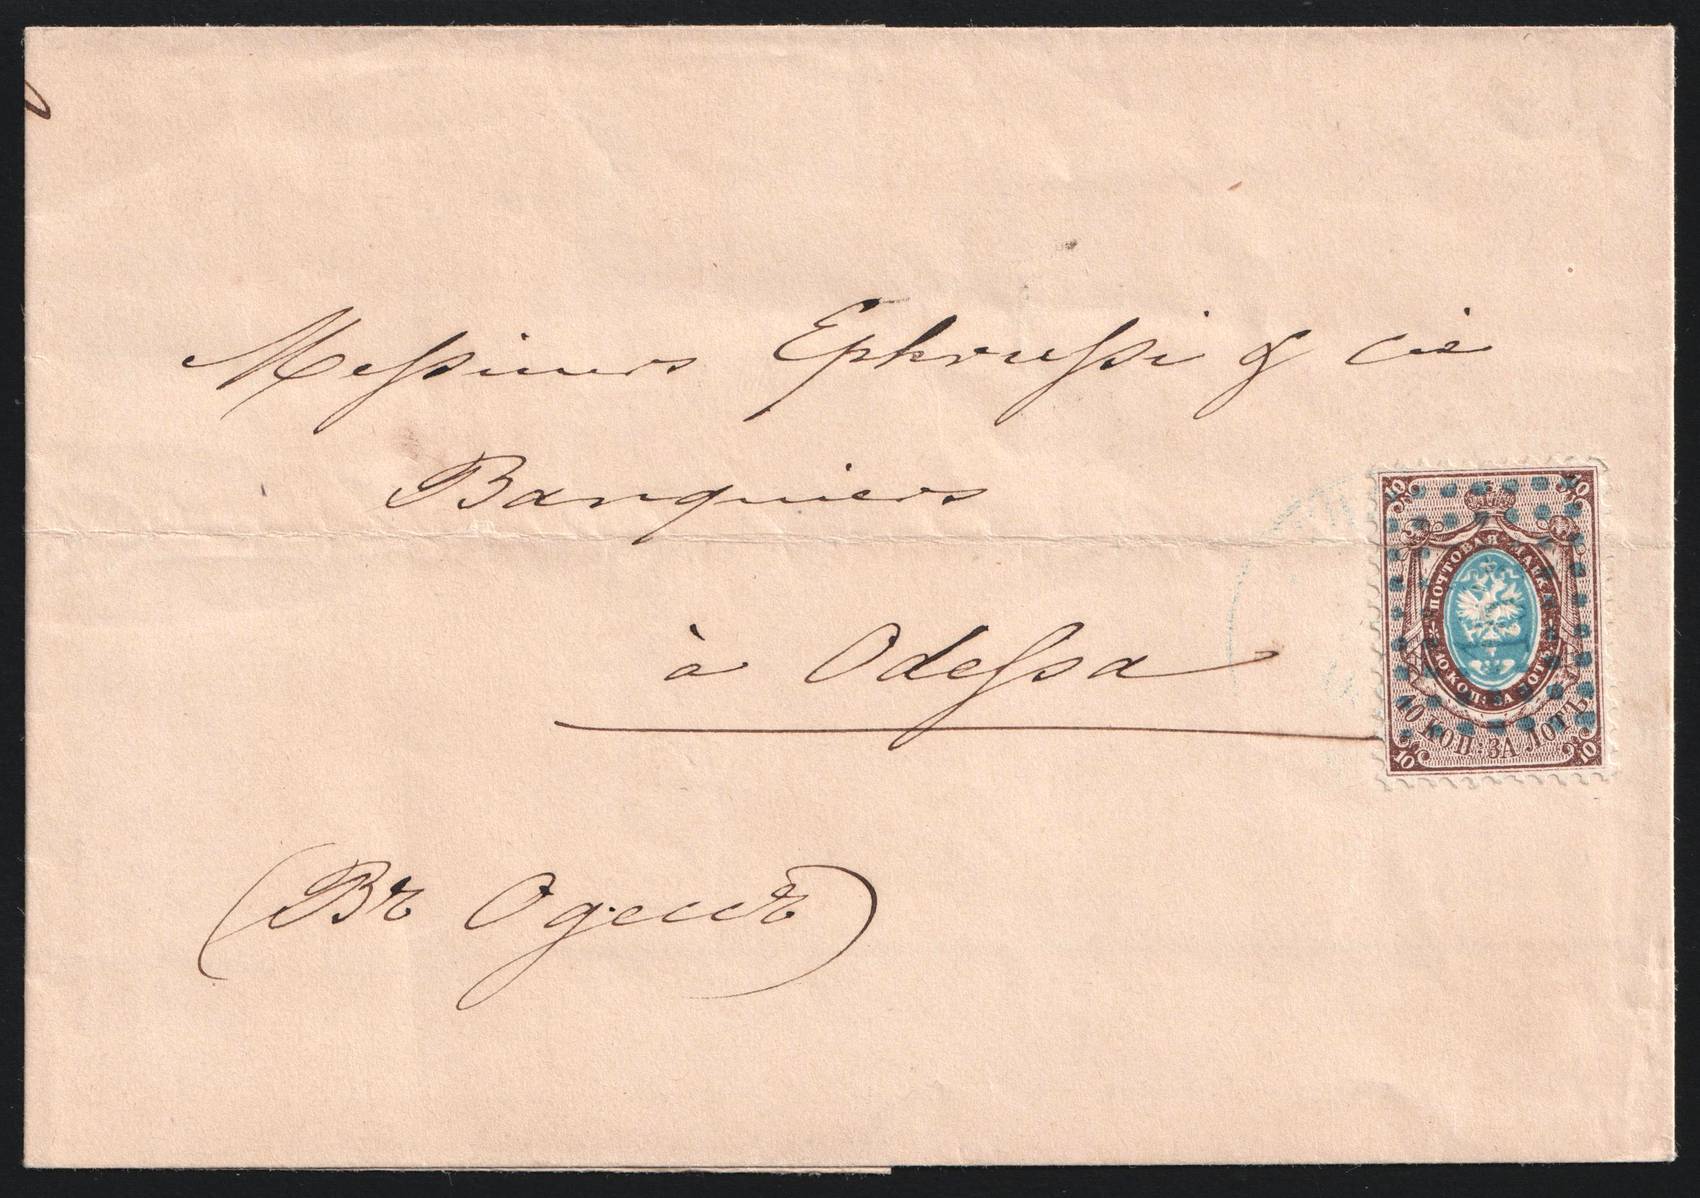 Messieurs Ephrussi & Cie
Banquiers
à Odessa
(Въ Одессѣ)
10 10
ПОЧТОВАЯ МАРКА
10 КОП: ЗА ЛОТЪ
10 КОП: ЗА ЛОТЪ
10 10